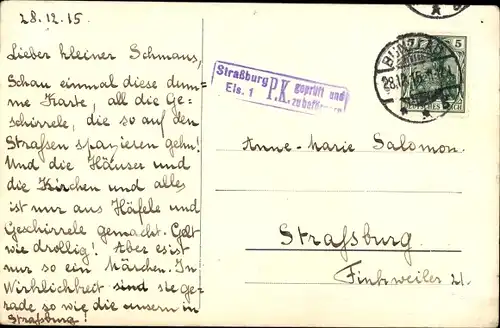 28.12.15
Lieber kleiner Schmaus,
Schau einmal diese dum-
me Karte, all die Ge-
schirrele, die so auf den
Straßen spazieren gehn!
Und die Häuser und
die Kirchen und alles
ist nur aus Häfele und
Geschirrele gemacht. Gelt
wie drollig! Aber es ist
nur so ein Märchen. In
Wirklichkeit sind sie ge-
rade so wie die unsern in
Strassburg!
Straßburg
Els. 1
P.K.
geprüft und
zu befördern
5
28.12.15
DEUTSCHES REICH
Anne-Marie Salomon.
Strassburg.
Finkweiler 21.